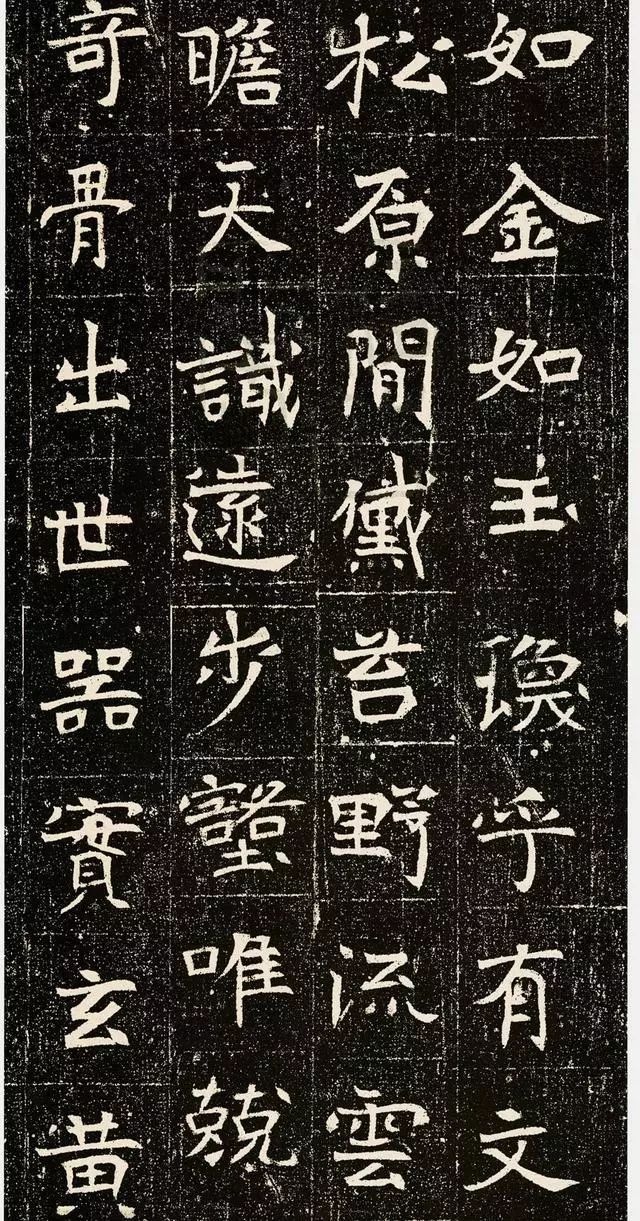 如金如玉乎有文
松原閒黛苔野流雲
瞻天識遠步壑唯兢
奇骨出世器實玄黄